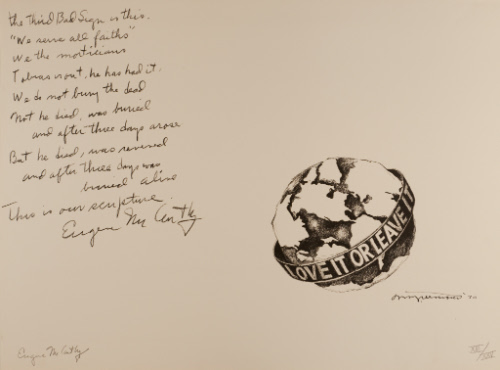 the Third Bad Sign is this.
"We serve all faiths"
We the morticians
Tobias is out, he has had it.
We do not bury the dead
Not he died, was buried
and after three days arose
But he died, was revived
and after three days was
buried alive
This is our scripture
Eugene McCarthy
LOVE IT OR LEAVE IT
Eugene McCarthy